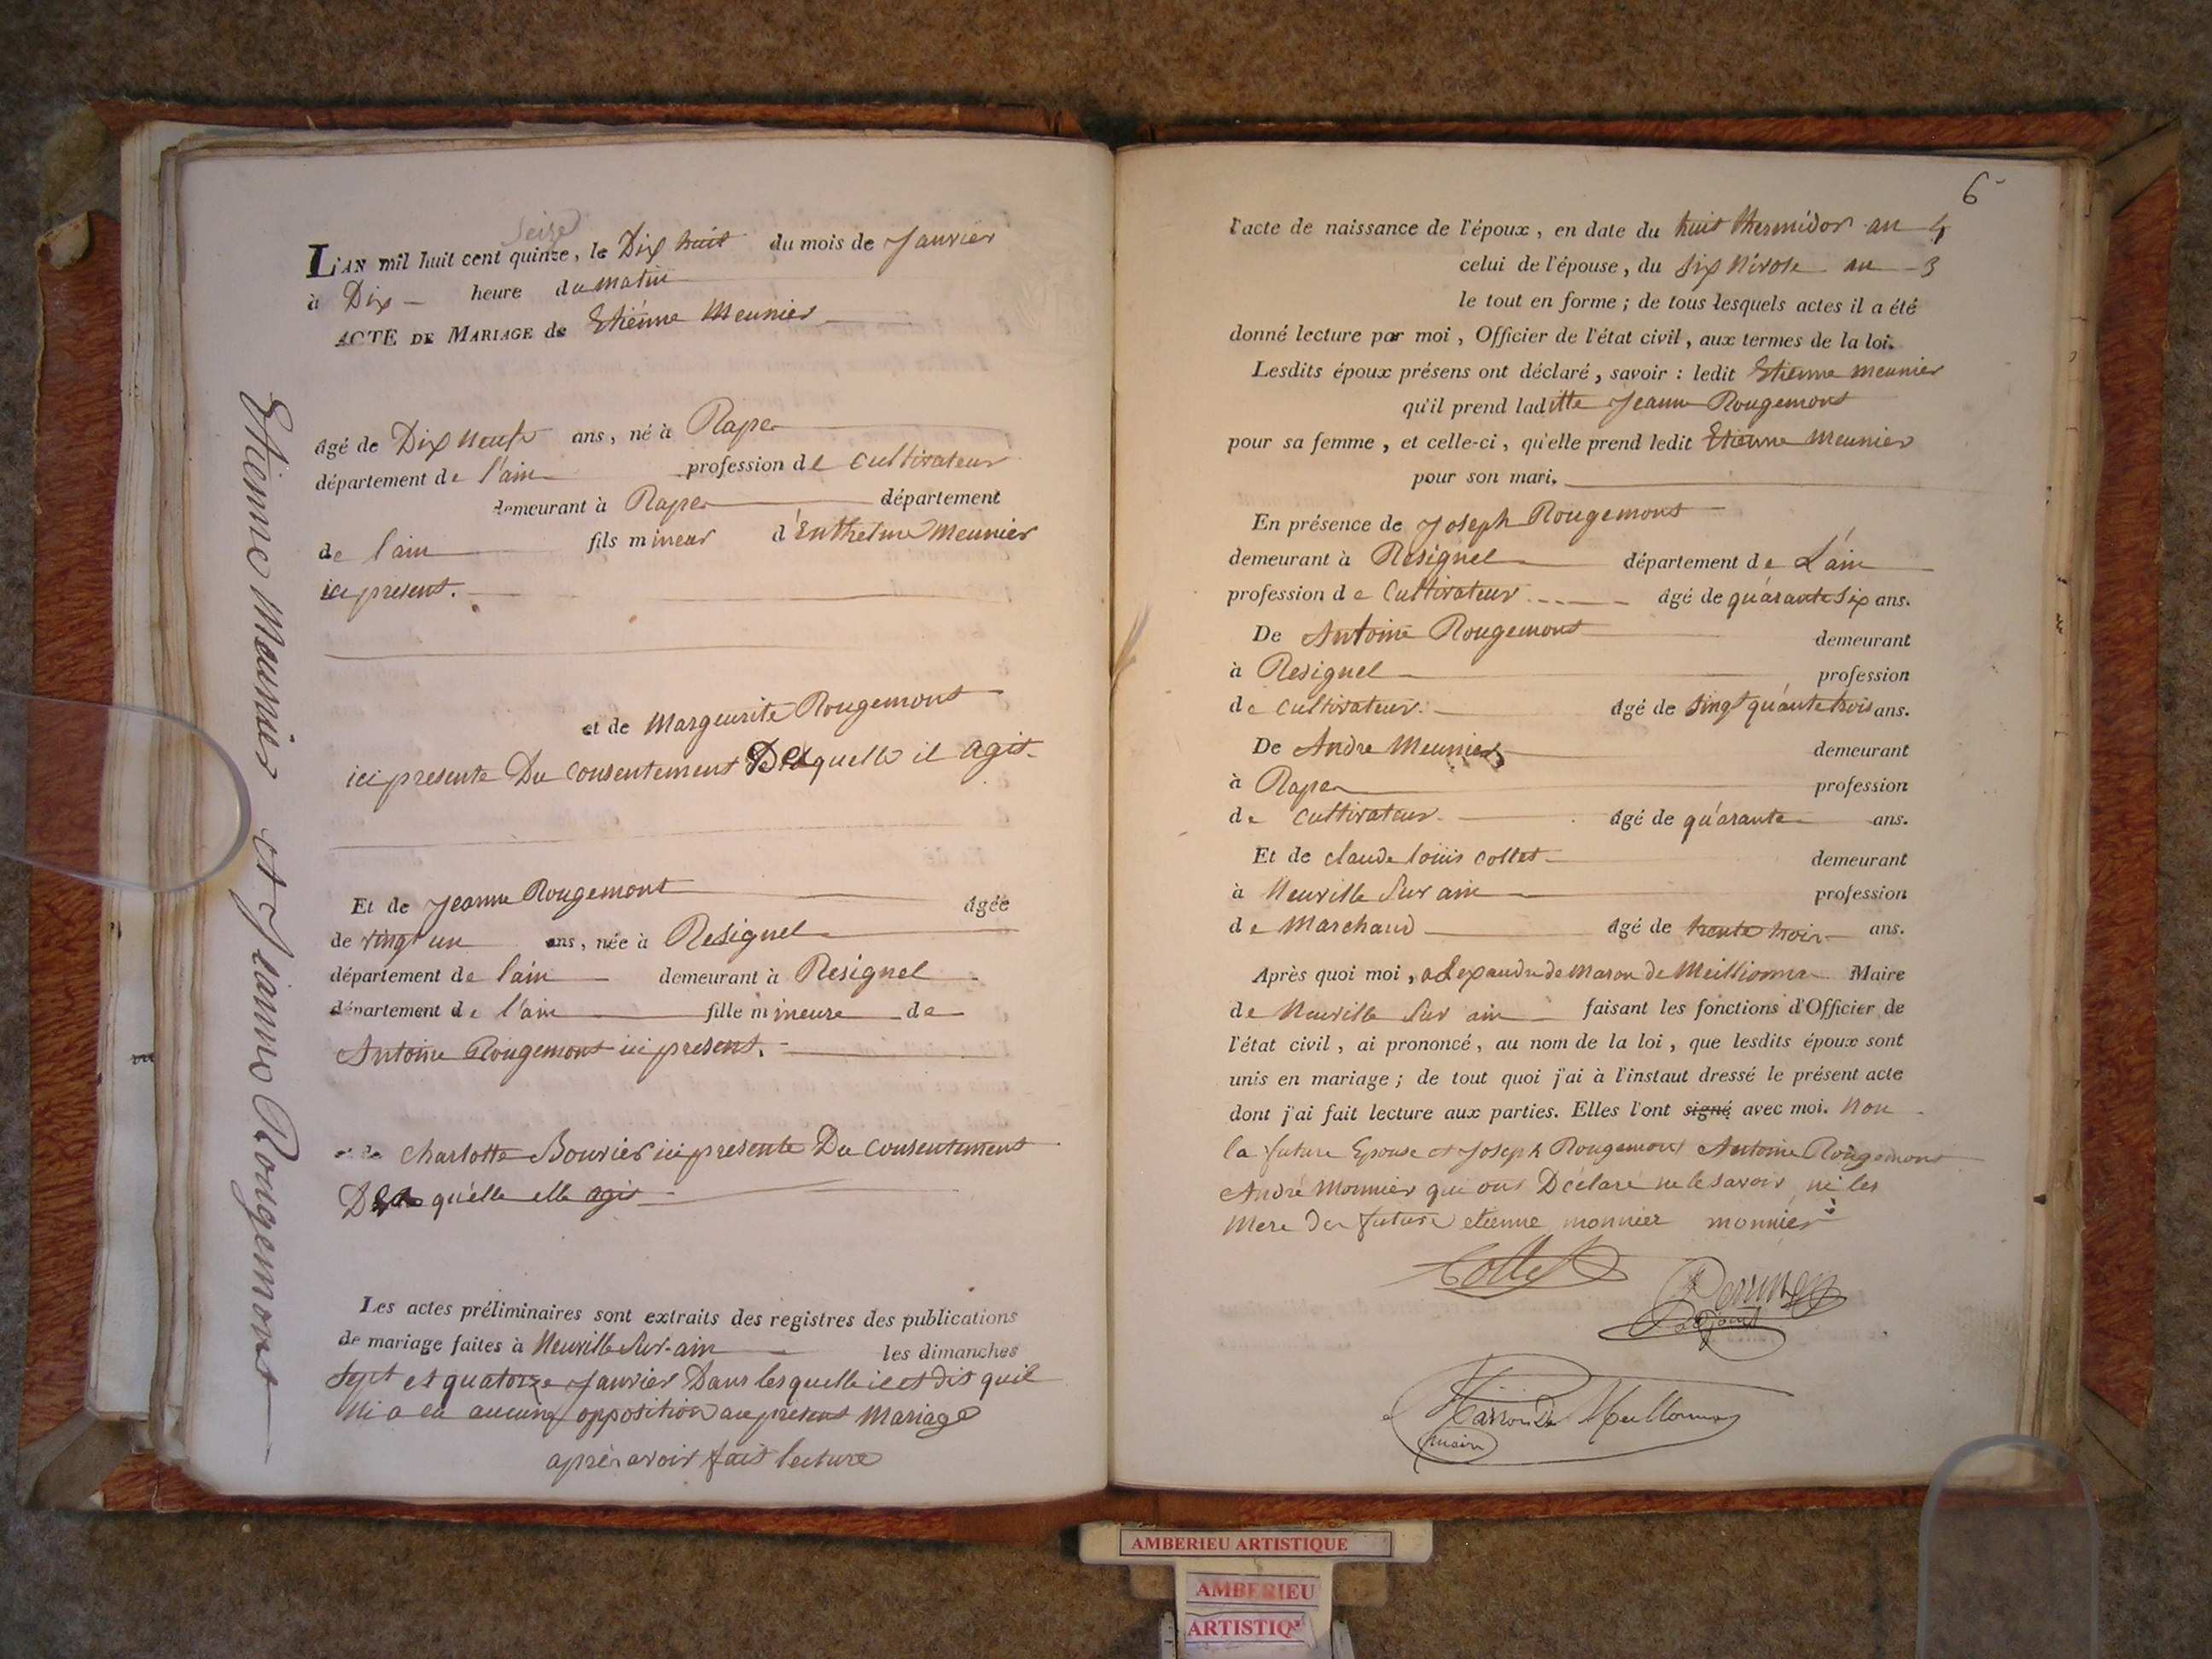 Seize
L'AN mil huit cent quinze, le Dix huit du mois de Janvier
à Dix heure du matin
ACTE DE MARIAGE de Etiénne Meunier
âgé de Dix neuf ans, né à Rape
département de l'ain profession de Cultivateur
demeurant à Rape département
de l'ain fils mineur d'Enthelme Meunier
ici present.
et de Marguerite Rougemont
ici presente Du Consentement Desquelle il agit
Et de Jeanne Rougemont âgée
de vingt un ans, née à Resignel
département de l'ain demeurant à Resignel
département de l'ain fille mineure de
Antoine Rougemont ici present.
Charlotte Bouvier ici presente Du Consentement
quélle elle agit
Les actes préliminaires sont extraits des registres des publications
de mariage faites à Neuville Sur-ain les dimanches
Sept et quatorze Janvier Dans lesquelle il est dit quil
ni a eu aucune opposition au present Mariage
après avoir fait lecture
Etienne Meunier et Jeanne Rougemont
6
l'acte de naissance de l'époux, en date du huit thermidor an 4
celui de l'épouse, du Six Nivose an 3
le tout en forme; de tous lesquels actes il a été
donné lecture par moi, Officier de l'état civil, aux termes de la loi.
Lesdits époux présens ont déclaré, savoir : ledit Etienne meunier
qu'il prend laditte Jeanne Rougemont
pour sa femme, et celle-ci, qu'elle prend ledit Etienne Meunier
pour son mari.
En présence de Joseph Rougemont
demeurant à Resignel département de L'ain
profession de Cultivateur âgé de quárante Six ans.
De Antoine Rougemont demeurant
à Resignel profession
de Cultivateur âgé de Singt quánte trois ans.
De Andre Meunier demeurant
à Rape profession
de Cultivateur âgé de quárante ans.
Et de claude louis Collet demeurant
à Neuville Sur ain profession
de Marchand âgé de trente trois ans.
Après quoi moi, alexandre de Maron de Meillionna Maire
de Neuville Sur ain faisant les fonctions d'Officier de
l'état civil, ai prononcé, au nom de la loi, que lesdits époux sont
unis en mariage; de tout quoi j'ai à l'instaut dressé le présent acte
dont j'ai fait lecture aux parties. Elles l'ont signé avec moi. Non
la future Epouse et Joseph Rougemont Antoine Rougemont
André Monnier qui ont Déclaré ne le savoir ni les
Mere des future etienne monnier monnier
Collet
adjoint
Marron De Meillonna
maire
AMBERIEU ARTISTIQUE
AMBERIEU
ARTISTIQ